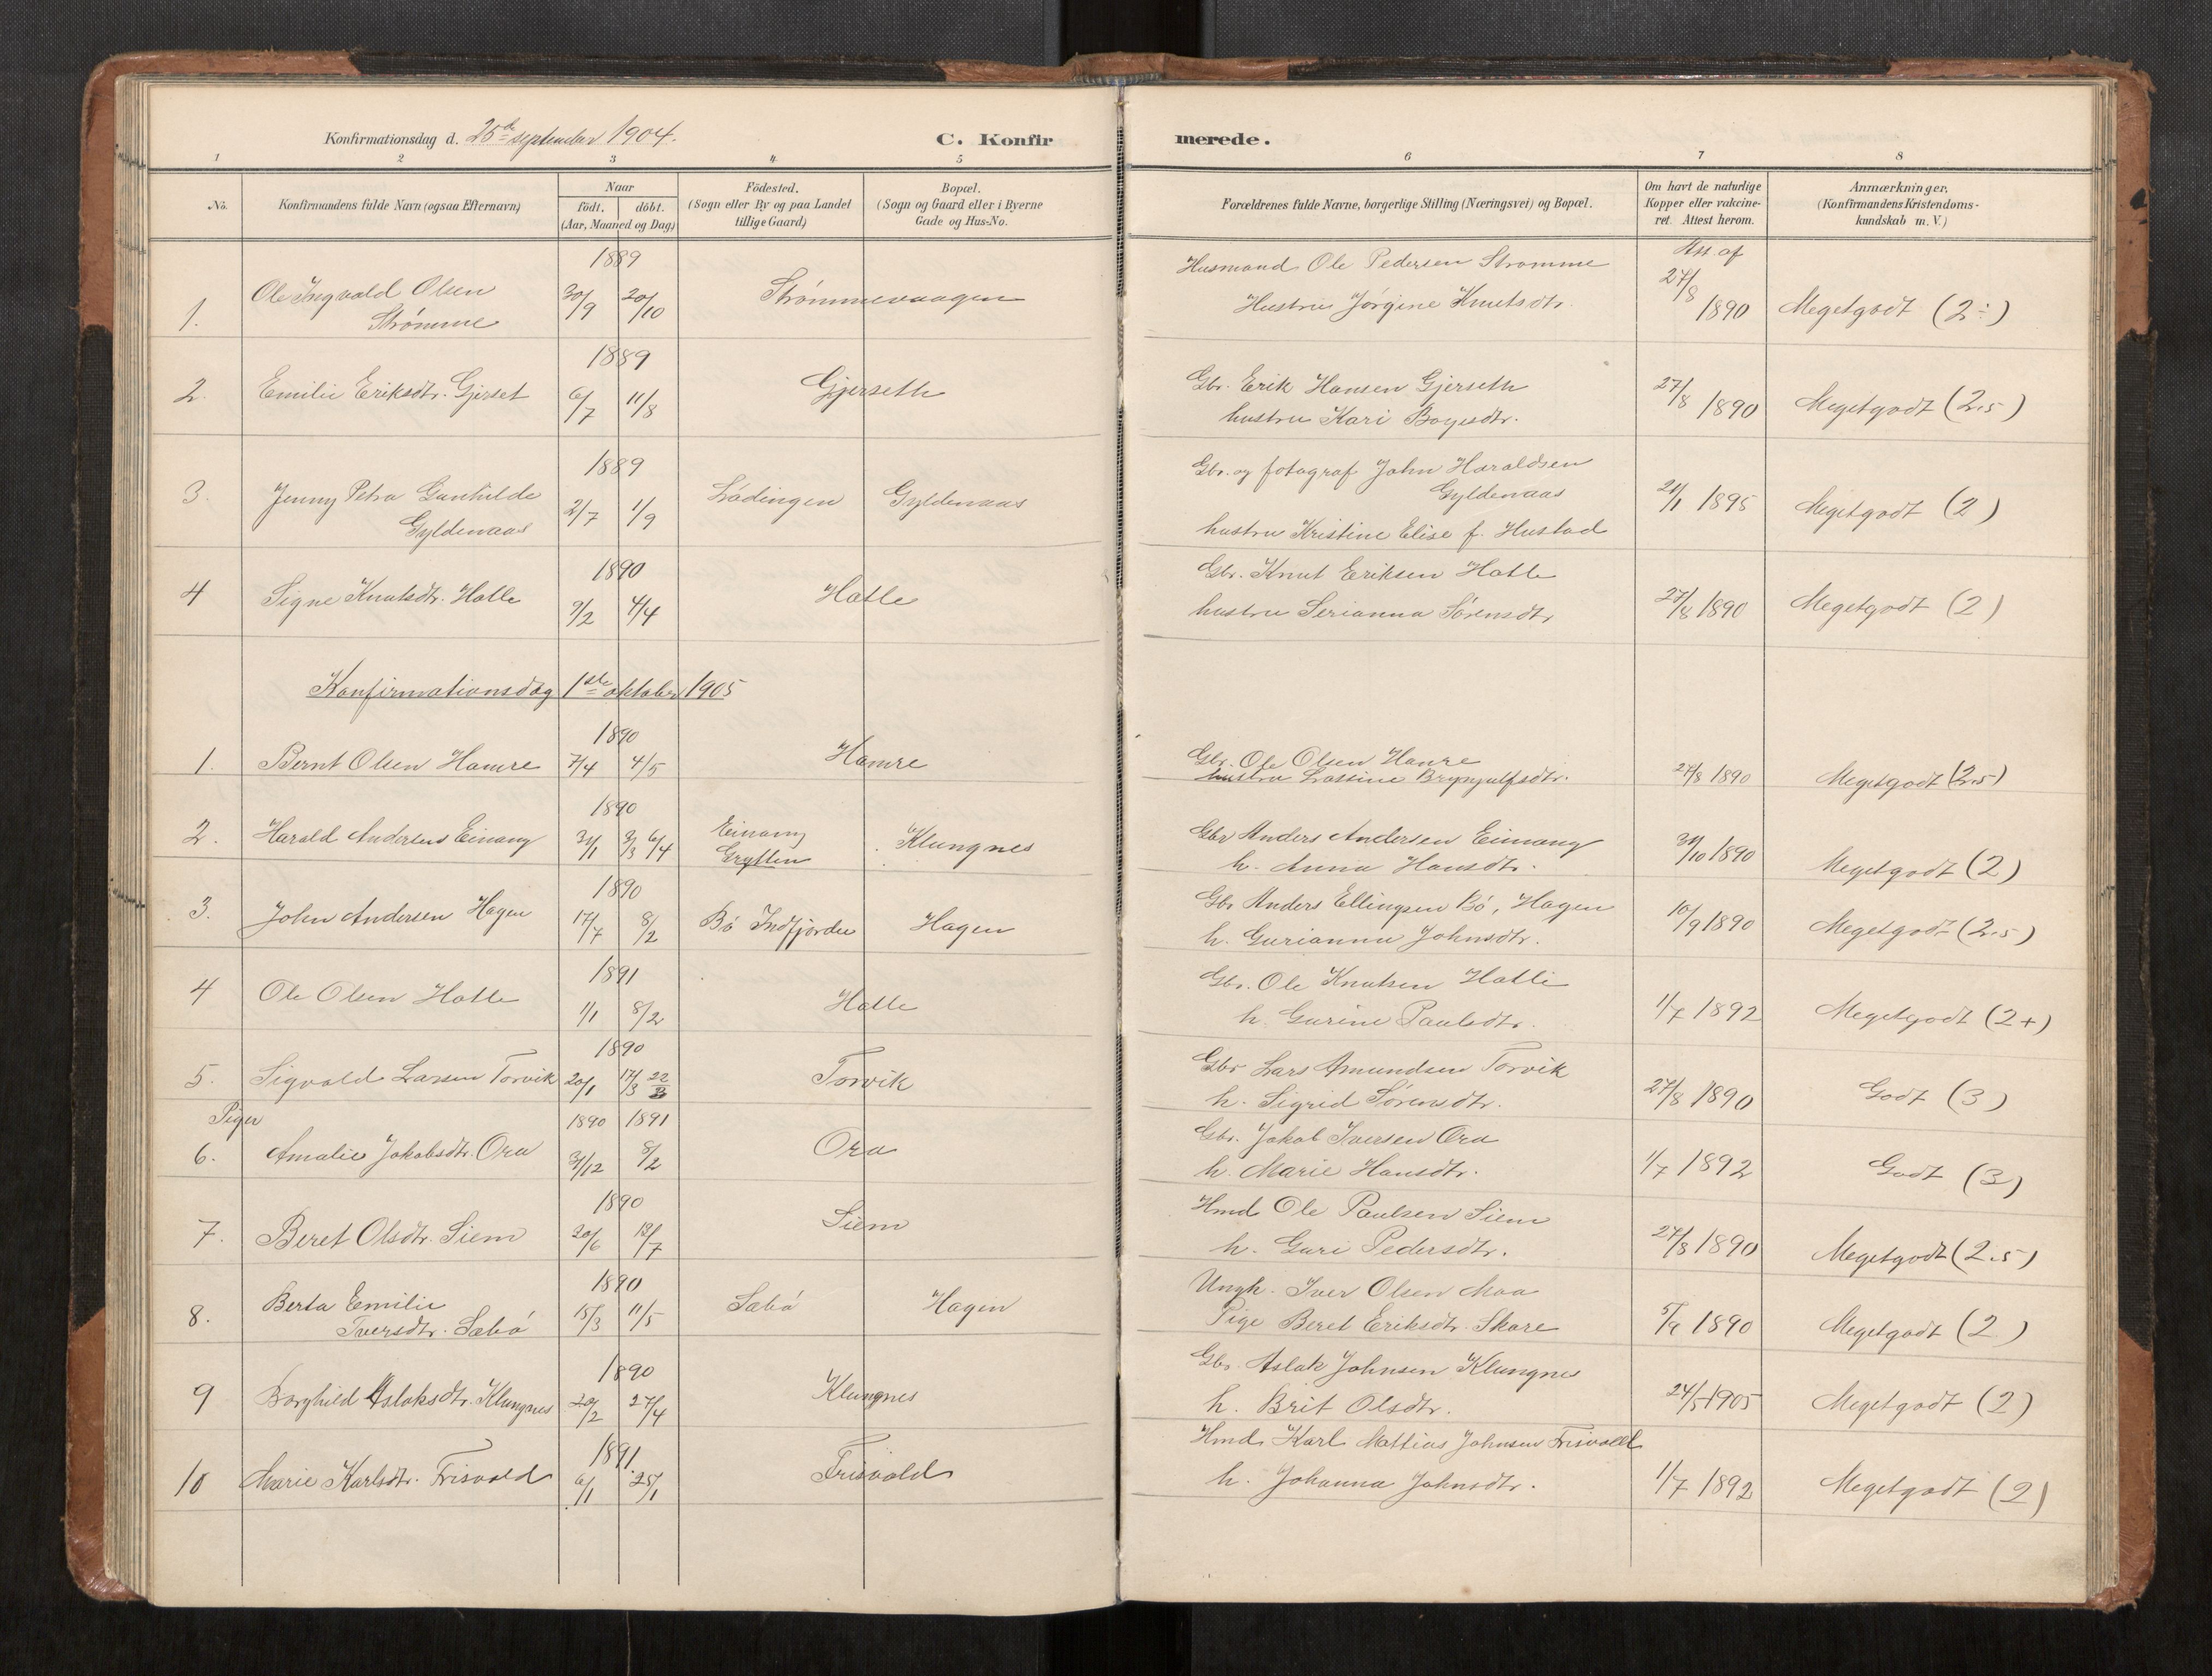 Konfirmationsdag d. 25de september 1904.
C. Konfir
merede.
1 2 3 4 5 6 7 8
No.
Konfirmandens fulde Navn (ogsaa Efternavn)
Naar
födt. döbt.
(Aar, Maaned og Dag)
Födested.
(Sogn eller By og paa Landet
tillige Gaard)
Bopæl.
(Sogn og Gaard eller i Byerne
Gade og Hus-No.
Forældrenes fulde Navne, borgerlige Stilling (Næringsvei) og Bopæl.
Om havt de naturlige
Kopper eller vakcine-
ret. Attest herom.
Anmærkninger.
(Konfirmandens Kristendoms-
kundskab m. V.)
1889 Husmand Ole Pedersen Strømme Att. af
1. Ole Ingvald Olsen 30/9 20/10 Strømmevaagen 27/8
Strømme Hustru Jørgine Knutsdtr. 1890 Megetgodt (2÷)
1889
2. Emilie Eriksdtr. Gjerset 6/7 11/8 Gjerseth Gbr. Erik Hansen Gjerseth 27/8 1890 Megetgodt (2.5)
hustru Kari Boyesdtr.
1889 Gbr. og fotograf John Haraldsen
3. Jenny Petra Gunhilde 2/7 1/9 Lödingen Gyldenaas Gyldenaas 21/1 1895 Megetgodt (2)
Gyldenaas hustru Kristine Elise f. Hustad
1890 Gbr. Knut Eriksen Hatle
4 Signe Knutsdtr. Hatle 9/2 4/4 Hatle hustru Serianna Sørensdtr. 27/8 1890 Megetgodt (2)
Konfirmationsdag 1ste oktober 1905
1890 Gbr. Ole Olsen Hamre
1. Bernt Olsen Hamre 7/4 4/5 Hamre hustru Lassine Brynjulfsdtr. 27/8 1890 Megetgodt (2.5)
1890 Einang
2. Harald Andersens Einang 31/1 3/3 6/4 Grytten Klungnes Gbr Anders Andersen Einang 31/10 1890 Megetgodt (2)
h. Anna Hansdtr.
1890 Gbr Anders Ellingsen Bö, Hagen
3. John Andersen Hagen 17/7 8/2 Bö Indfjorden Hagen h. Gurianna Johnsdtr. 10/9 1890 Megetgodt (2.5)
1891 Gbr. Ole Knutsen Hatle
4 Ole Olsen Hatle 1/1 8/2 Hatle h. Gurine Paulsdtr. 1/7 1892 Megetgodt (2+)
1890 Gbr Lars Amundsen Torvik
5. Sigvald Larsen Torvik 20/1 17/3 22/3 Torvik h. Sigrid Sørensdtr. 27/8 1890 Godt (3)
Piger 1890 1891 Gbr. Jakob Iversen Ora
6. Amalie Jakobsdtr. Ora 31/12 8/2 Ora h. Marie Hansdtr. 1/7 1892 Godt (3)
1890 Hmd Ole Paulsen Siem
7. Beret Olsdtr. Siem 20/6 13/7 Siem h. Guri Pedersdtr. 27/8 1890 Megetgodt (2.5)
1890 Ungk. Iver Olsen Moa
8. Berta Emilie 15/3 11/5 Sæbö Hagen Pige Beret Eriksdtr. Skare 5/9 1890 Megetgodt (2)
Iversdtr. Sæbö
1890 Gbr. Aslak Johnsen Klungnes
9 Borghild Aslaksdtr. Klungnes 20/2 27/4 Klungnes h. Brit Olsdtr. 24/5 1905 Megetgodt (2)
1891. Hmd. Karl Mattias Johnsen Frisvold
10 Marie Karlsdtr. Frisvold 6/1 25/1 Frisvold h. Johanna Johnsdtr. 1/7 1892 Megetgodt (2)